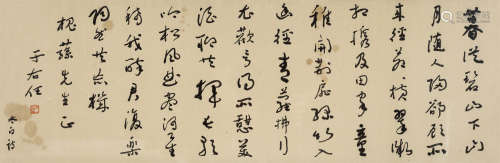 暮從碧山下山
月隨人歸卻顧所
來徑蒼蒼橫翠微
相攜及田家童
稚開荊扉綠竹入
幽徑青蘿拂行
衣歡言得所憩美
酒聊共揮長歌
吟松風曲盡河星
稀我醉君復樂
陶然共忘機
先生正
于右任
太白詩